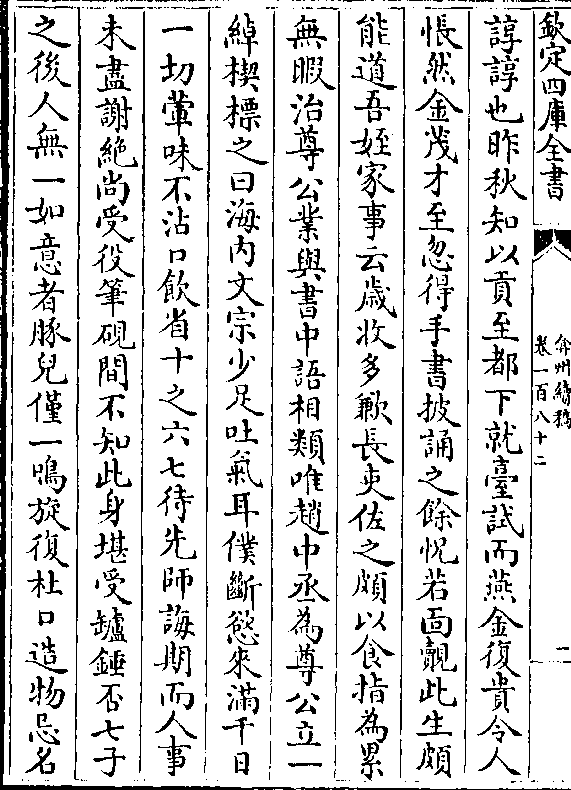 欽定四庫全書
弇州續稿
卷一百八十二
二
諄諄也昨秋知以貢至都下就臺試而燕金復貴令人
悵然金茂才至忽得手書披誦之餘怳若面覿此生頗
能道吾姪家事云歲收多歉長吏佐之頗以食指為累
無暇治尊公業與書中語相類唯趙中丞為尊公立一
綽楔標之曰海内文宗少足吐氣耳僕斷慾來滿千日
一切葷味不沾口飲省十之六七待先師誨期而人事
未盡謝絶尚受役筆硯間不知此身堪受罏錘否七子
之後人無一如意者豚兒僅一鳴旋復杜口造物忌名